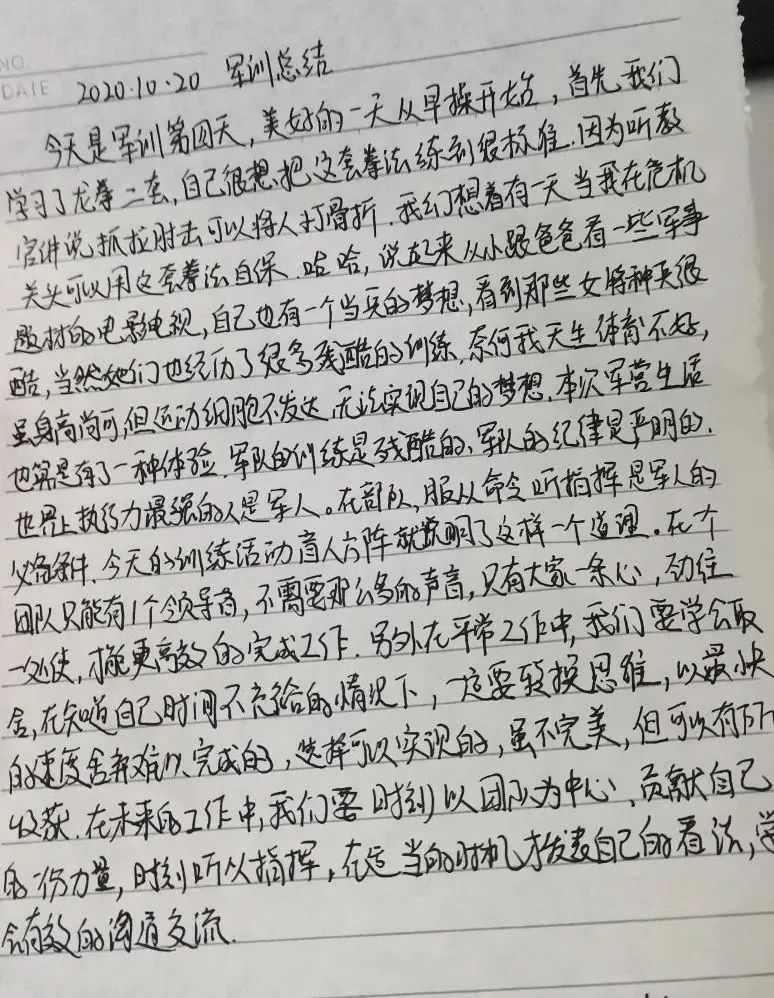 NO.
DATE 2020.10.20 军训总结
今天是军训第四天,美好的一天从早操开始,首先我们
学习了龙拳二套,自己很想把这套拳法练到很标准.因为听教
官讲说抓拉肘击可以将人打骨折.我幻想着有一天当我在危机
关头可以用这套拳法自保.哈哈,说起来从小跟爸爸看一些军事
题材的电影电视,自己也有一个当兵的梦想,看到那些女特种兵很
酷,当然她们也经历了很多残酷的训练.奈何我天生体育不好,
虽身高尚可,但运动细胞不发达,无法实现自己的梦想.本次军营生活
也算是有了一种体验.军队的训练是残酷的、军队的纪律是严明的.
世界上执行力最强的人是军人。在部队,服从命令听指挥是军人的
必备条件.今天的训练活动盲人方阵就说明了这样一个道理。在个
团队只能有1个领导者,不需要那么多的声音,只有大家一条心,劲往
一处使,才能更高效的完成工作.另外在平常工作中,我们要学会取
舍,在知道自己时间不充裕的情况下,一定要转换思维,以最快
的速度舍弃难以完成的,选择可以实现的,虽不完美,但可以有所
收获.在未来的工作中,我们要时刻以团队为中心,贡献自己
的一份力量,时刻听从指挥,在适当的时机才发表自己的看法,学
会有效的沟通交流.